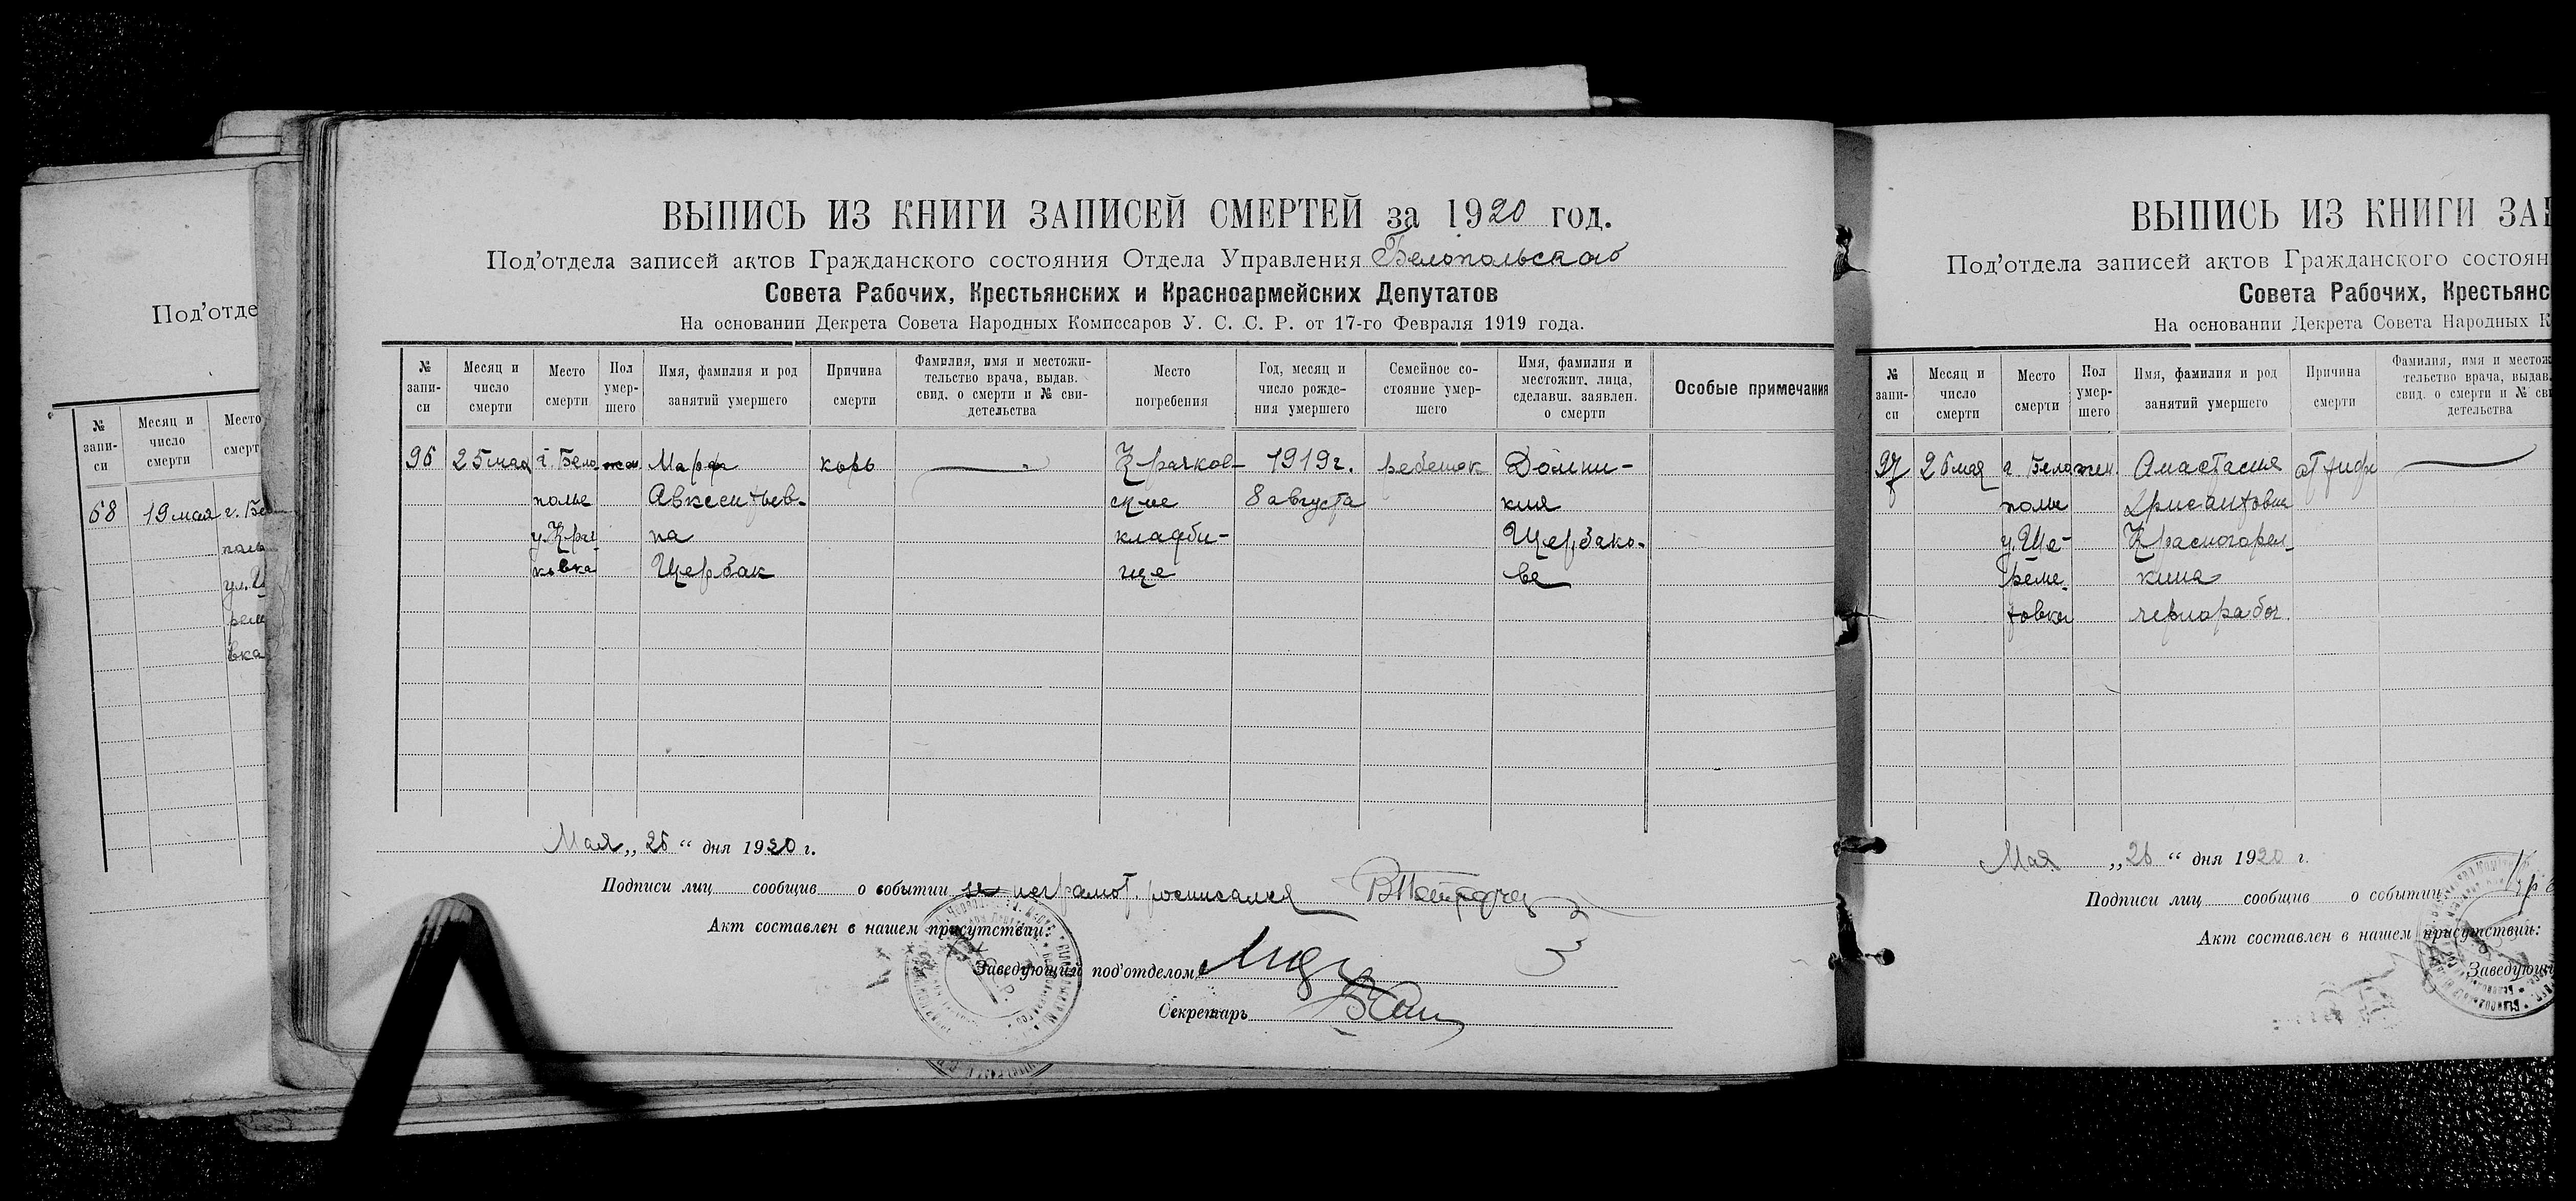 Под'отде
№ запи- си
Месяц и число смерти
Место смерт
68 19 мая г. Бе
поль
ул. Ш
реме
вка
ВЫПИСЬ ИЗ КНИГИ ЗАПИСЕЙ СМЕРТЕЙ за 1920 год.
Под'отдела записей актов Гражданского состояния Отдела Управления Белопольского
Совета Рабочих, Крестьянских и Красноармейских Депутатов
На основании Декрета Совета Народных Комиссаров У. С. С. Р. от 17-го Февраля 1919 года.
№ запи- си
Месяц и число смерти
Место смерти
Пол умер- шего
Имя, фамилия и род занятий умершего
Причина смерти
Фамилия, имя и местожи- тельство врача, выдав. свид. о смерти и № сви- детельства
Место погребения
Год, месяц и число рожде- ния умершего
Семейное со- стояние умер- шего
Имя, фамилия и местожит. лица, сделавш. заявлен. о смерти
Особые примечания
96 25 мая г. Бело жен. Марфа корь Крачков- 1919 г. ребенок Домни-
полье Авксентьев- ское 8 августа кия
у. Кра- на кладби- Щербако-
ковка Щербак ще ва
Мая „ 26 “ дня 1920 г.
Подписи лиц сообщив о событии неграмот. росписался
Акт составлен в нашем присутствии:
Заведующий под'отделом
Секретарь
ВЫПИСЬ ИЗ КНИГИ ЗАП
Под'отдела записей актов Гражданского состоян
Совета Рабочих, Крестьянс
На основании Декрета Совета Народных К
№ запи- си
Месяц и число смерти
Место смерти
Пол умер- шего
Имя, фамилия и род занятий умершего
Причина смерти
Фамилия, имя и местож тельство врача, выдав. свид. о смерти и № сви детельства
97 26 мая г. Бело жен. Анастасия от тифа
полье Хрисантовна
у. Ше- Красногорел-
реме- кина
товка чернорабоч.
Мая „ 26 “ дня 1920 г.
Подписи лиц сообщив о событии
Акт составлен в нашем присутствии:
Заведующи